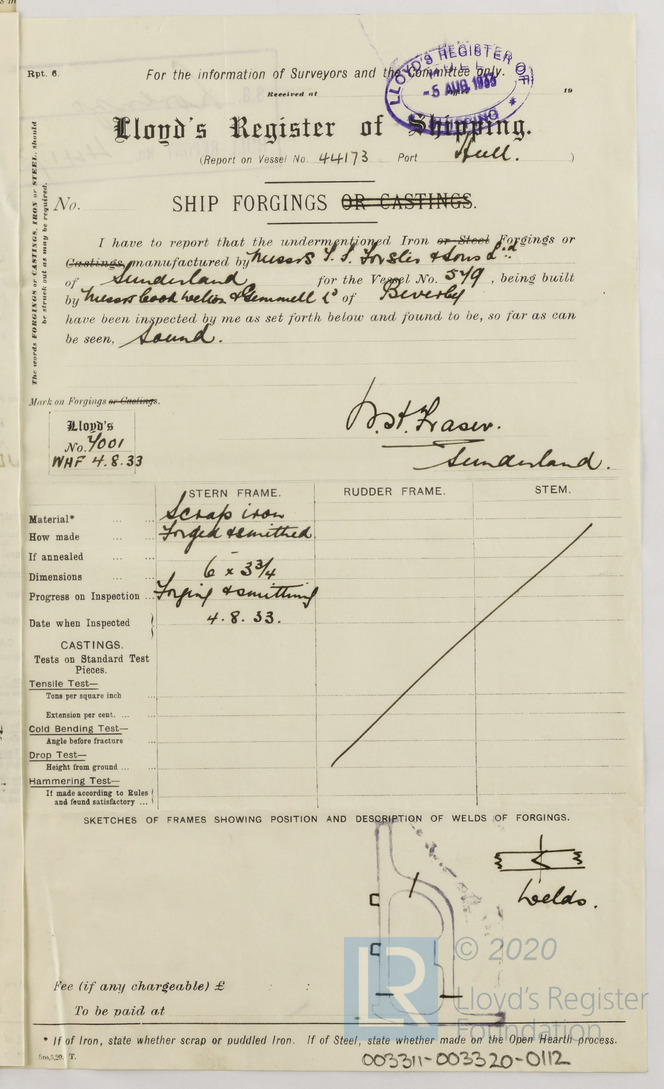 Rpt. 6.
For the information of Surveyors and the Committee only.
Received at
19
LLOYD'S REGISTER OF
HULL
-5 AUG 1933
SHIPPING
Lloyd's Register of Shipping.
(Report on Vessel No. 44173 Port Hull.)
The words FORGINGS or CASTINGS, IRON or STEEL, should
be struck out as may be required.
No.
SHIP FORGINGS OR CASTINGS.
I have to report that the undermentioned Iron or Steel Forgings or
Castings, manufactured by Messrs T. S. Forster & Sons Ltd
of Sunderland for the Vessel No. 579, being built
by Messrs Cook Welton & Gemmell Ld of Beverly
have been inspected by me as set forth below and found to be, so far as can
be seen, Sound.
Mark on Forgings or Castings.
Lloyd's
No. 7001
WHF 4.8.33
W.H. Fraser.
Sunderland.
STERN FRAME. RUDDER FRAME. STEM.
Material* Scrap iron
How made Forged & smithed
If annealed -
Dimensions 6 x 3 3/4
Progress on Inspection Forging & smithing
Date when Inspected 4.8.33.
CASTINGS.
Tests on Standard Test
Pieces.
Tensile Test—
Tons per square inch
Extension per cent.
Cold Bending Test—
Angle before fracture
Drop Test—
Height from ground
Hammering Test—
If made according to Rules
and found satisfactory
SKETCHES OF FRAMES SHOWING POSITION AND DESCRIPTION OF WELDS OF FORGINGS.
Welds.
Fee (if any chargeable) £ : :
To be paid at
LR
© 2020
Lloyd's Register
Foundation
* If of Iron, state whether scrap or puddled Iron. If of Steel, state whether made on the Open Hearth process.
5m,5,20. T.
003311-003320-0112